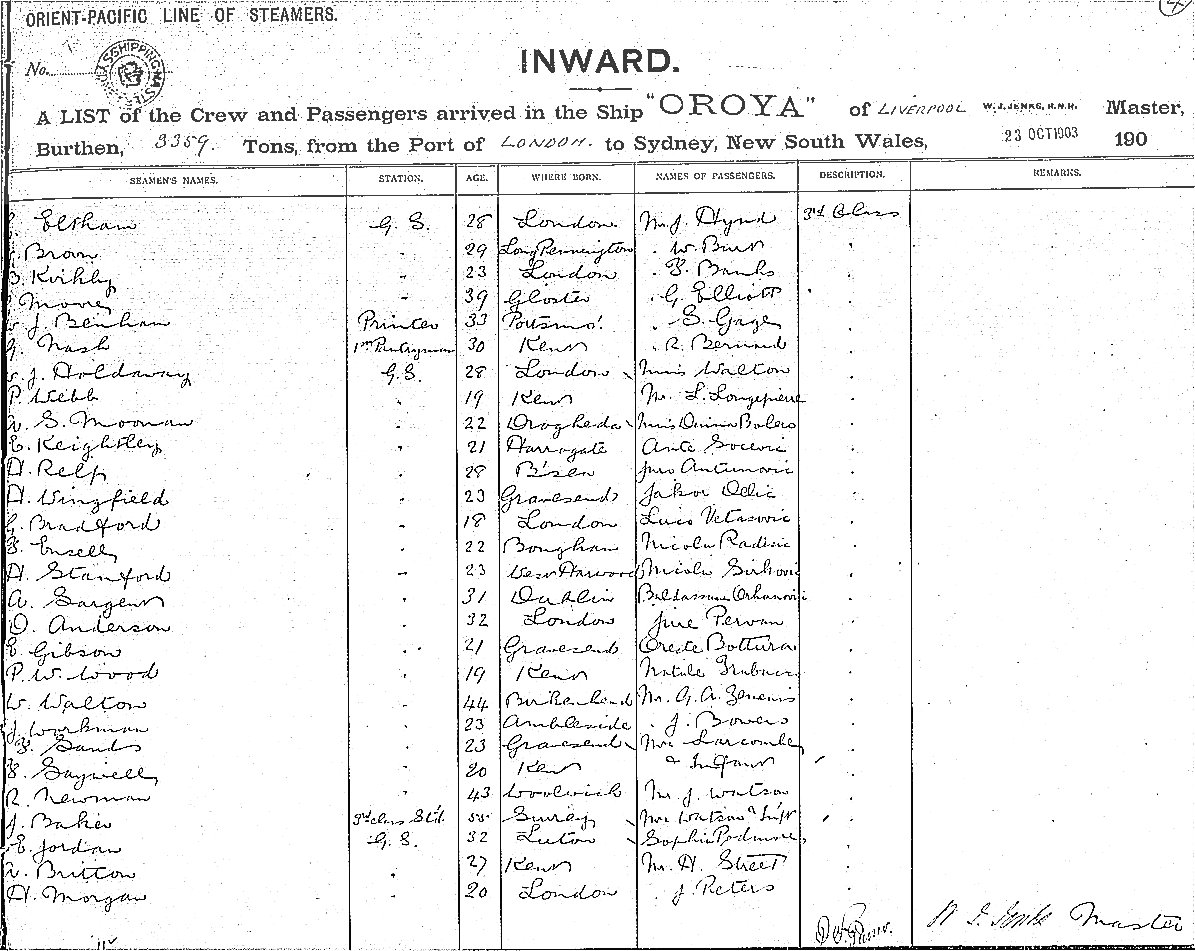 ORIENT-PACIFIC LINE OF STEAMERS.
No.
INWARD.
A LIST of the Crew and Passengers arrived in the Ship "OROYA" of LIVERPOOL W. J. JENKS, R.N.R. Master,
Burthen, 3359. Tons, from the Port of LONDON. to Sydney, New South Wales, 23 OCT 1903 190
SEAMEN'S NAMES. STATION. AGE. WHERE BORN. NAMES OF PASSENGERS. DESCRIPTION. REMARKS.
Eltham G. S. 28 London Mr J. Hynd 3rd Class
Brown 29 Long Pennington W. Burr
Kirkby 23 London F. Banks
39 Gloster G. Elliott
J. Benham Printer 33 Portsmo' S. Gage
Nash 1st Pantryman 30 Kent R. Bernard
J. Holdaway G.S. 28 London Miss Walton
P. Webb 19 Kent Mr. L. Longepierre
S. Moonan 22 Drogheda Miss
E. Keightley 21 Harrogate Ante
H. Relf 28 Jure Antunovic
H. Wingfield 23 Gravesend Jakov
G. Bradford 18 London Luis
22 Nicola Radisic
H. Stanford 23 West Nicola
A. Sargent 31 Dublin
O. Anderson 32 London Jure Pervan
E. Gibson 21 Gravesend Oreste Bottura
P. W. Wood 19 Kent Natale
W. Walton 44 Birkenhead Mr. G. A.
J. Workman 23 Ambleside J. Bowers
F. Sands 23 Gravesend Mrs Larcombe
Saywell 20 Kent & Infant
R. Newman 43 Woolwich Mr J. Watson
J. Baker 3rd class Std. 55 Surrey Mrs Watson & Inft
E. Jordan G. S. 32 Luton Sophia Podmore
Britton 27 Kent Mr. H. Street
H. Morgan 20 London J. Peters
W. J. Jenks Master